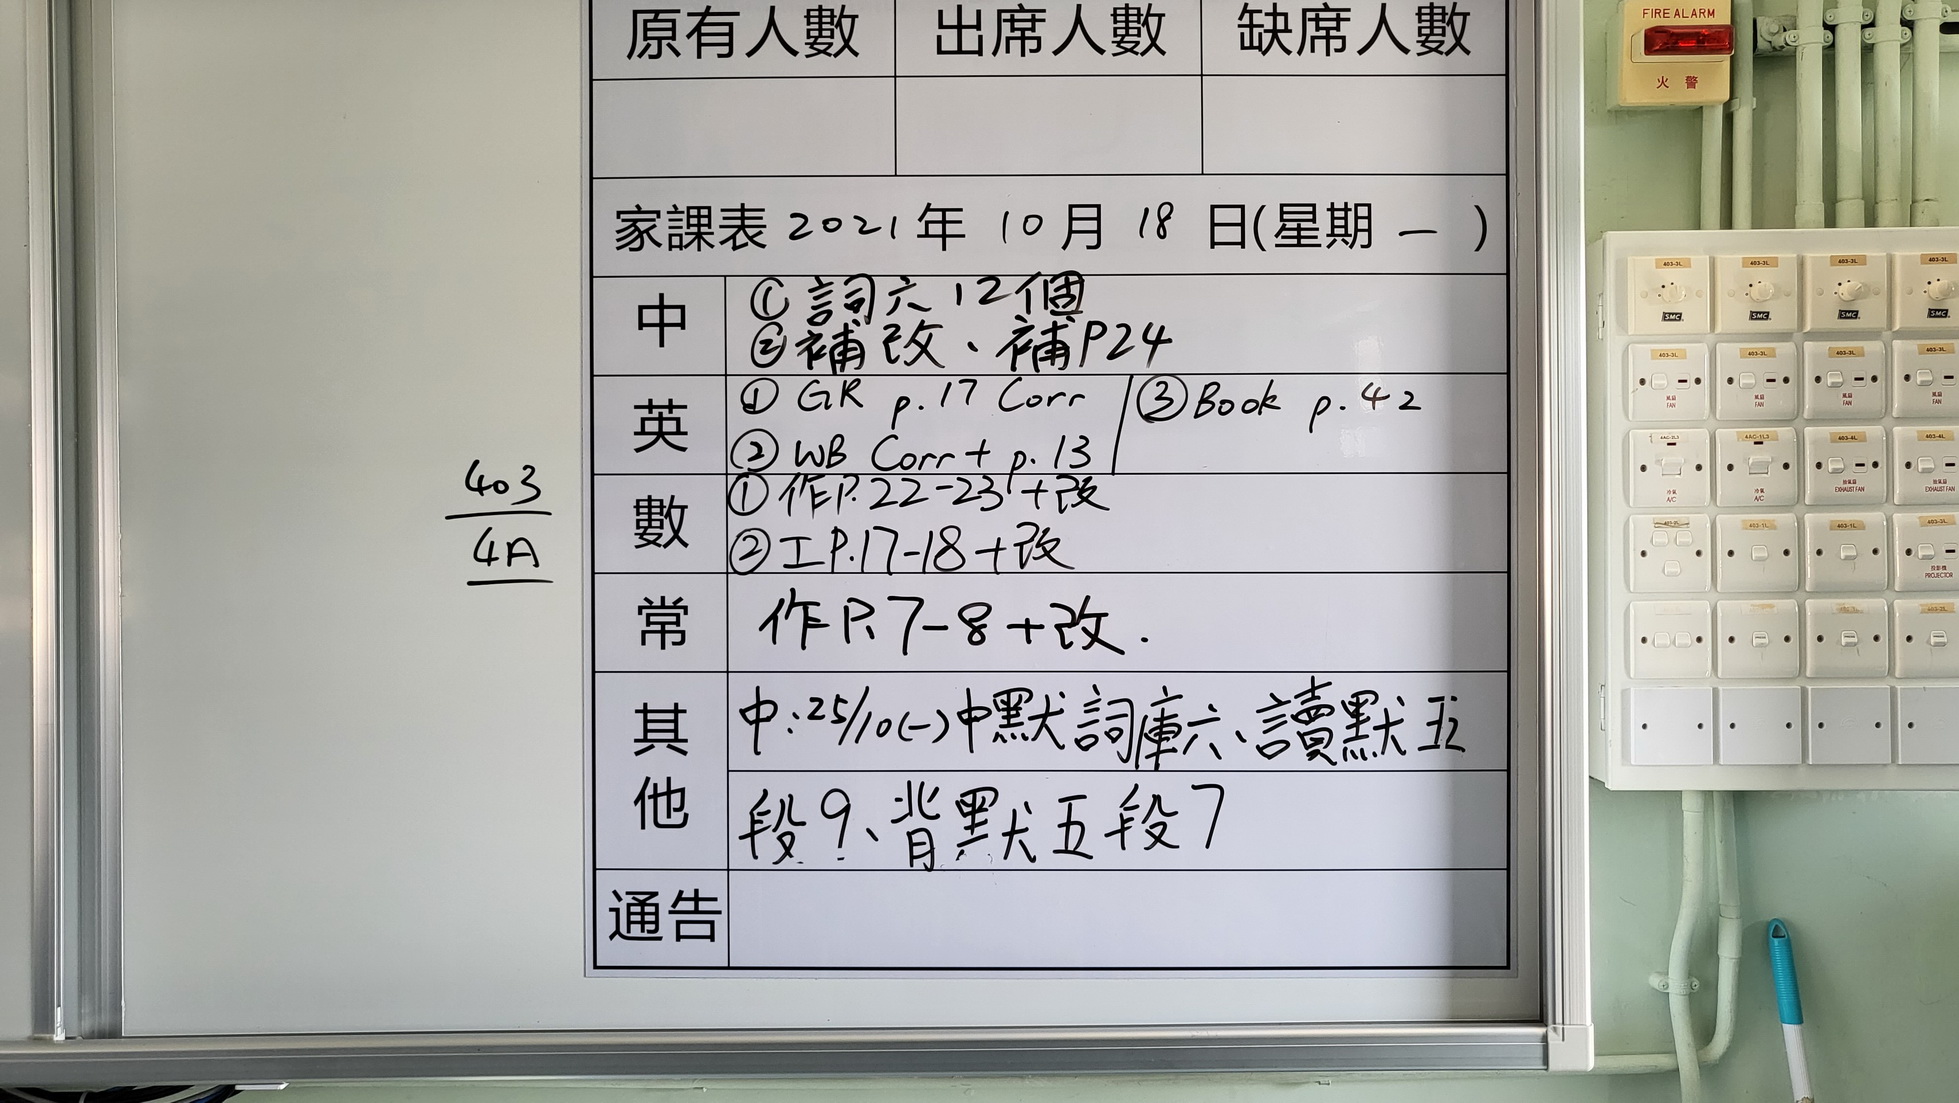 原有人數 出席人數 缺席人數
家課表 2021年 10月 18日(星期 一 )
中
① 詞六 12個
② 補改、補P24
英
① GR p.17 Corr
② WB Corr + p.13
③ Book p.42
數
① 作P.22-23+改
② 工P.17-18+改
常
作P.7-8+改.
其他
中:25/10(一)中默詞庫六、讀默五
段9、背默五段7
通告
403
4A
FIRE ALARM
火警
403-3L 403-3L 403-3L 403-3L
SMC SMC SMC SMC
403-3L 403-3L 403-3L 403-3L
風扇 風扇 風扇 風扇
FAN FAN FAN FAN
4AC-1L3 403-4L 403-4L
冷氣 冷氣 抽氣扇 抽氣扇
A/C A/C EXHAUST FAN EXHAUST FAN
403-1L 403-1L 403-3L
投影機
PROJECTOR